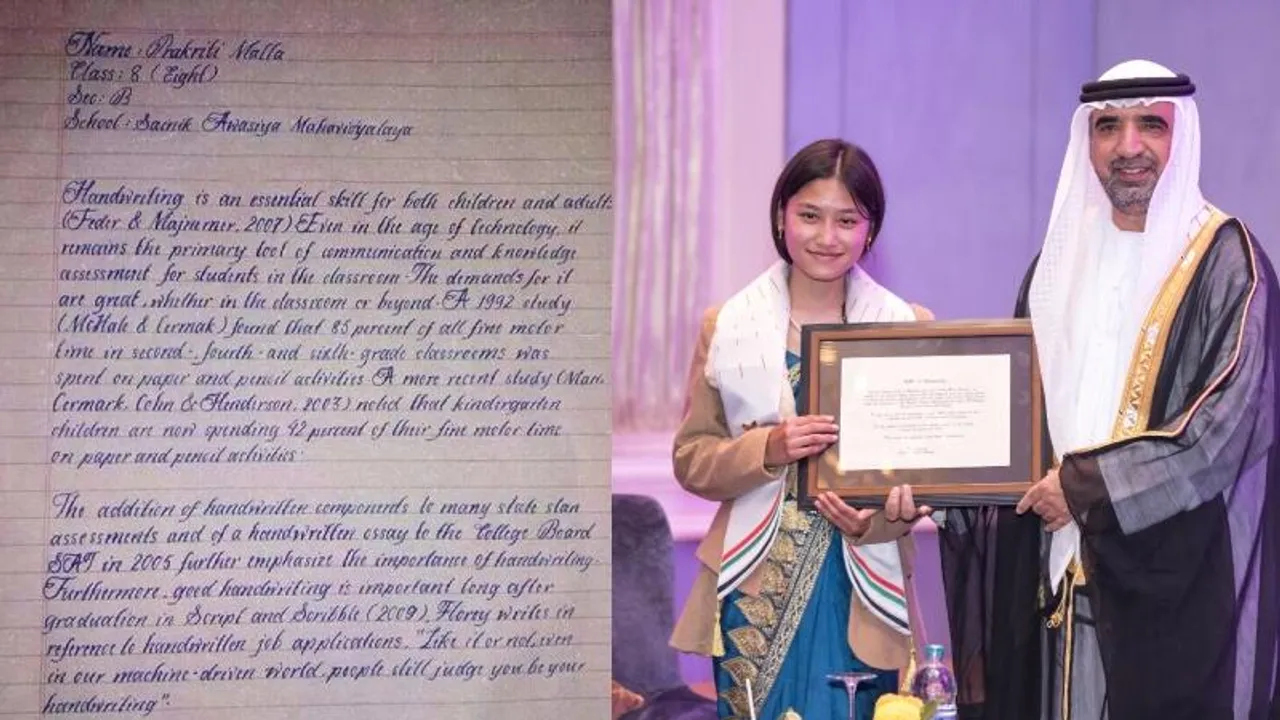 Name: Prakriti Malla
Class: 8 (Eight)
Sec: B
School: Sainik Awasiya Mahavidyalaya
Handwriting is an essential skill for both children and adults
(Feder & Majnemer, 2007) Even in the age of technology, it
remains the primary tool of communication and knowledge
assessment for students in the classroom. The demands for it
are great, whether in the classroom or beyond. A 1992 study
(McHale & Cermak) found that 85 percent of all fine motor
time in second-, fourth- and sixth-grade classrooms was
spent on paper and pencil activities. A more recent study (Marr,
Cermark, Cohn & Henderson, 2003) noted that kindergarten
children are now spending 42 percent of their fine motor time
on paper and pencil activities.
The addition of handwritten components to many state stan
assessments and of a handwritten essay to the College Board
SAT in 2005 further emphasize the importance of handwriting.
Furthermore, good handwriting is important long after
graduation in Script and Scribble (2009), Florey writes in
reference to handwritten job applications, "Like it or not, even
in our machine-driven world, people still judge you be your
handwriting".